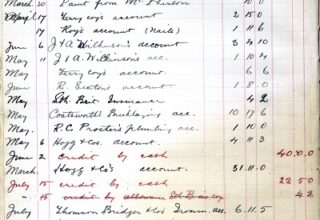 March 20 Paint from Mr 1. 0. 0
April 17 Ferry Coy's account 2 15 0
" 17 Roy's account (Nails) 1 0
June 6 J & A Wilkinson's account 3 4 10
May 11 J. & A. Wilkinson's acc. 10 4
May Ferry Coy's account 6 6
June R. account 1 8 0
May Sth. Brit Insurance 4 2
May Coatsworth Bricklaying acc. 10 17 6
May. R. C. Proctor's plumbing acc. 1 10 0
May 6 Hogg & Cos. account. 4 11 3
June 2 credit by cash 40. 0. 0
March Hogg & Co's account. 31. 11. 0
July 15 credit by cash 22 5 0
" 15 credit by Sth Brit Ins coy 4 2
July Thomson Bridger & Cos acc. 6. 11. 5